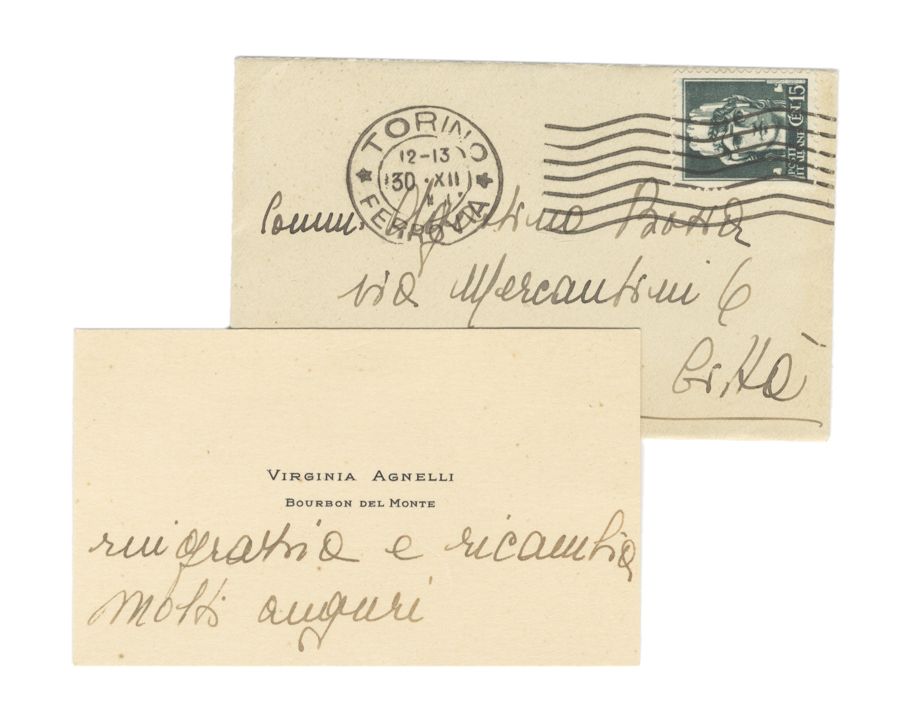 TORINO
12-13
30 · XII
FERROVIA
POSTE ITALIANE CENT 15
Comm. Agostino Botta
via Mercantini 6
Città
VIRGINIA AGNELLI
BOURBON DEL MONTE
ringrazia e ricambia
molti auguri